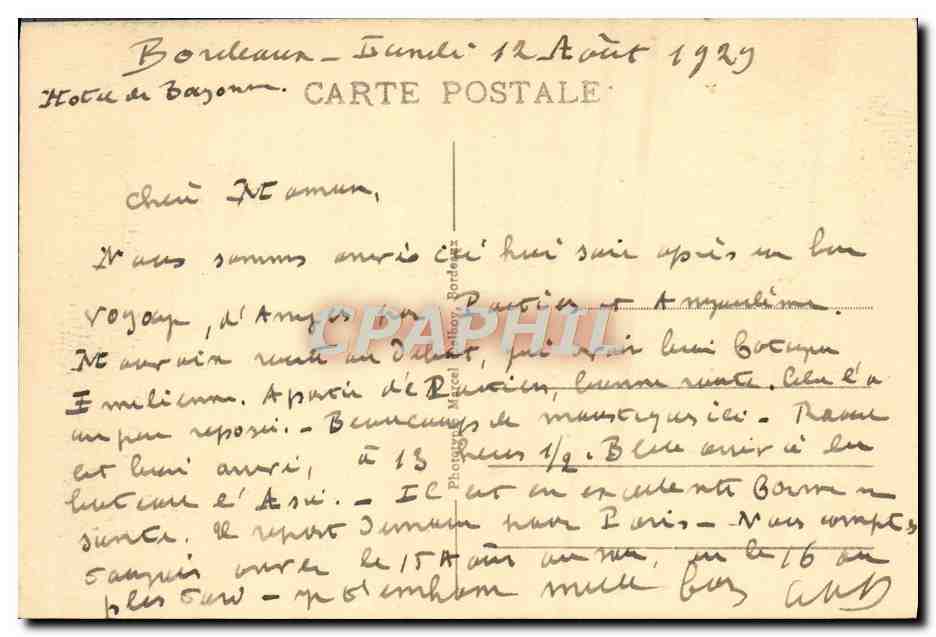 Bordeaux - Lundi 12 Août 1929
Hotel de Bayonne. CARTE POSTALE
Chère Maman,
Nous sommes arrivés ici hier soir après un bon
voyage, d'Angers par Poitiers et Angoulême.
Mauvaise route au Début, qui avait bien fatigué
Emilienne. A partir de Poitiers, bonne route. Cela l'a
un peu reposée. - Beaucoup de moustiques ici -
est bien arrivé, à 13 heures 1/2.
l'Asie. - Il est en excellente forme et
santé. Il repart Demain pour Paris - Nous comptons
toujours arriver le 15 Août au soir, ou le 16 au
plus tard - je t'embrasse mille fois
Phototypie Marcel Delboy, Bordeaux
CPAPHIL.com